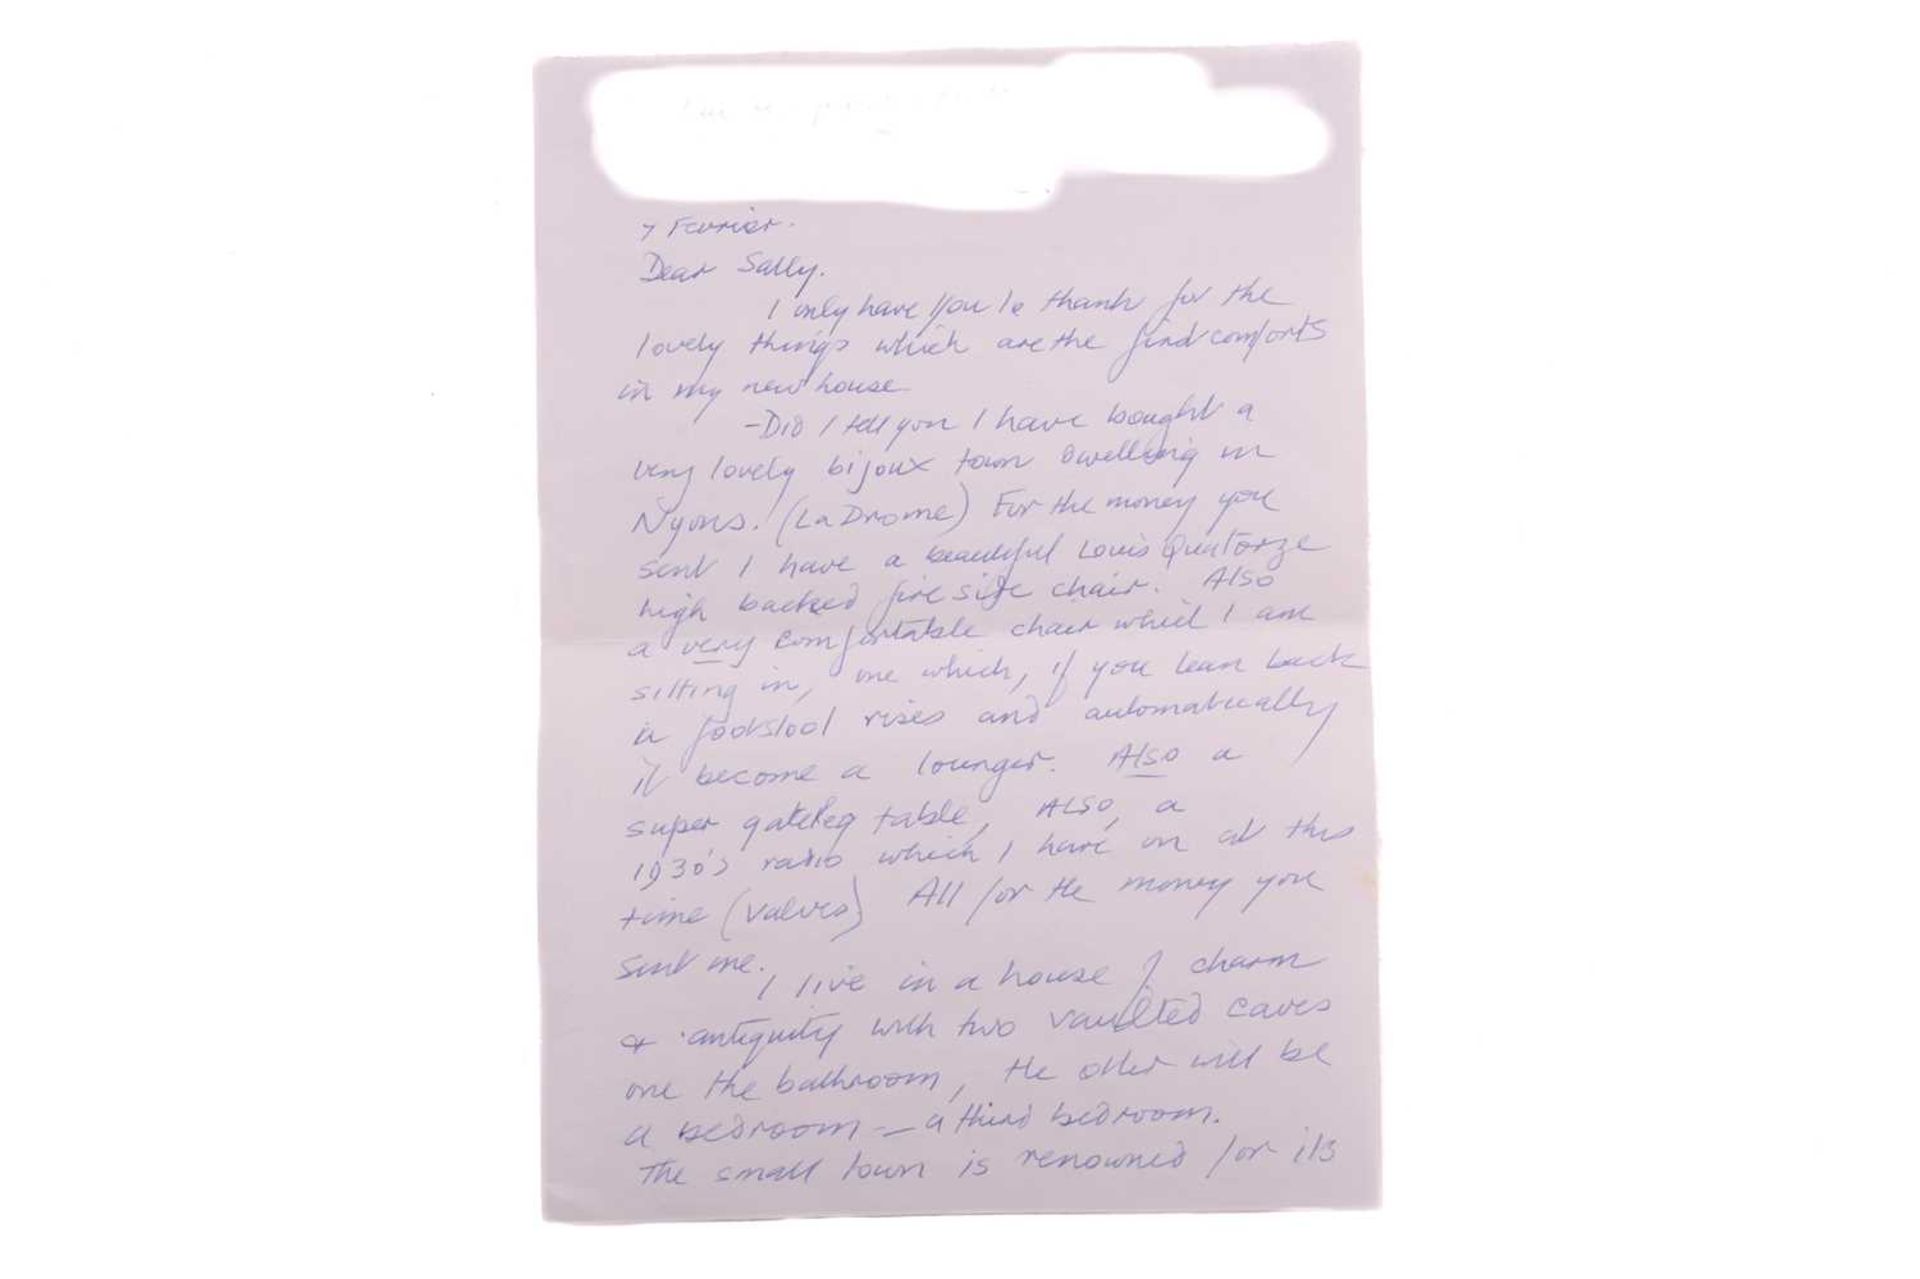 7 Fevrier.
Dear Sally.
I only have you to thank for the
lovely things which are the find comforts
in my new house
-Did I tell you I have bought a
very lovely bijoux town dwelling in
Nyons. (La Drome) For the money you
sent I have a beautiful Louis Quatorze
high backed fire side chair. Also
a very comfortable chair which I am
sitting in, one which, if you lean back
a footstool rises and automatically
it become a lounger. Also a
super gateleg table, ALSO, a
1930's radio which I have on at this
time (valves) All for the money you
sent me.
I live in a house of charm
& antiquity with two vaulted caves
one the bathroom, the other will be
a bedroom - a third bedroom.
The small town is renowned for its